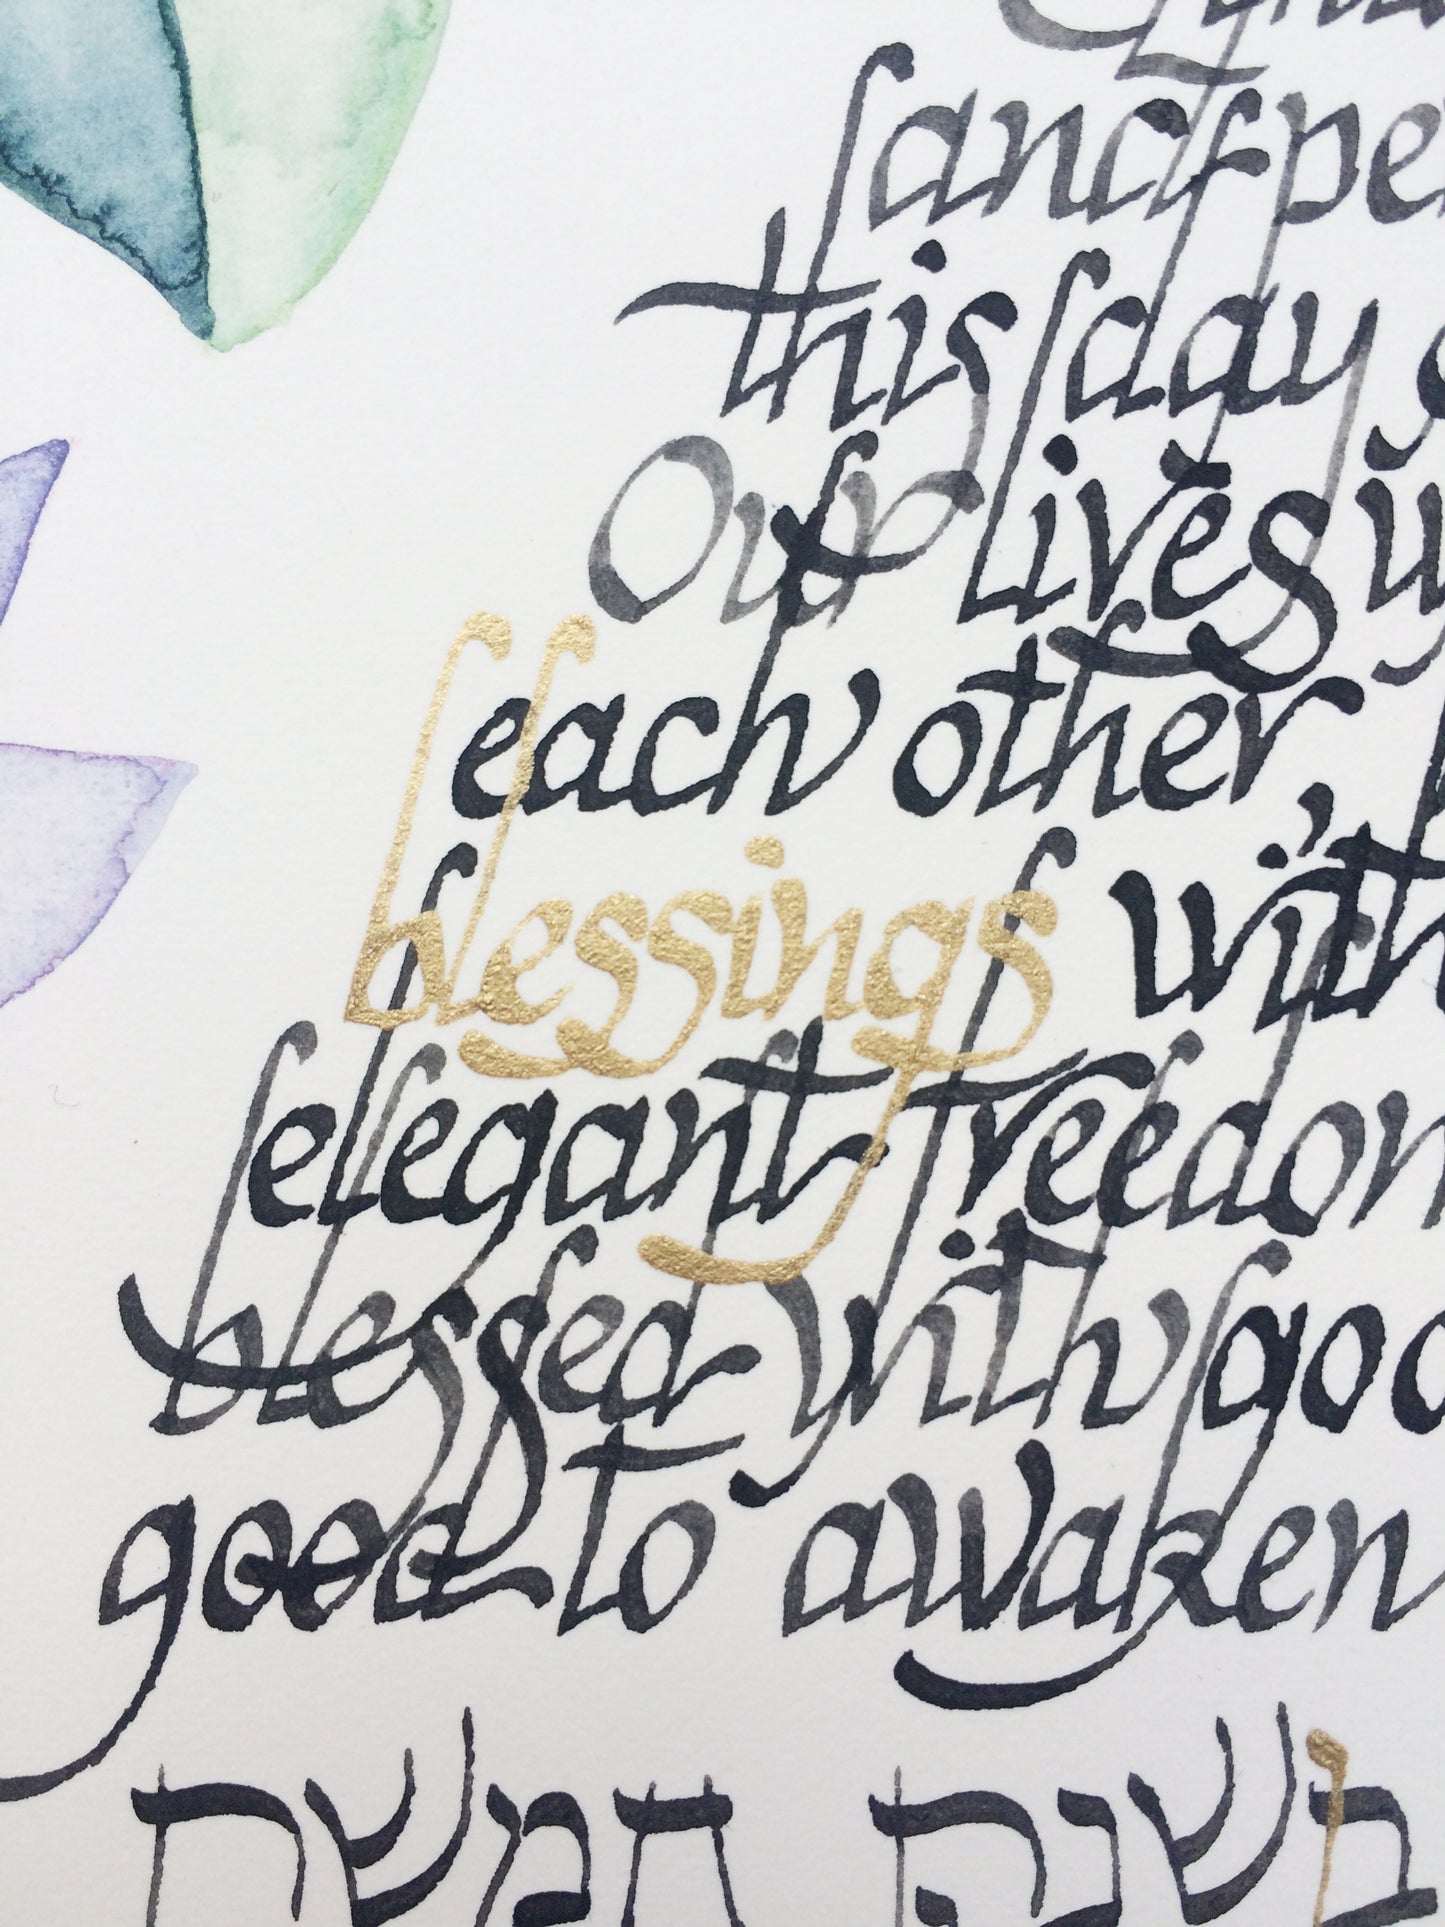 and pe
this day
Our lives
each other,
blessings with
elegant freedom
blessed with good
good to awaken
בשנה חמשת